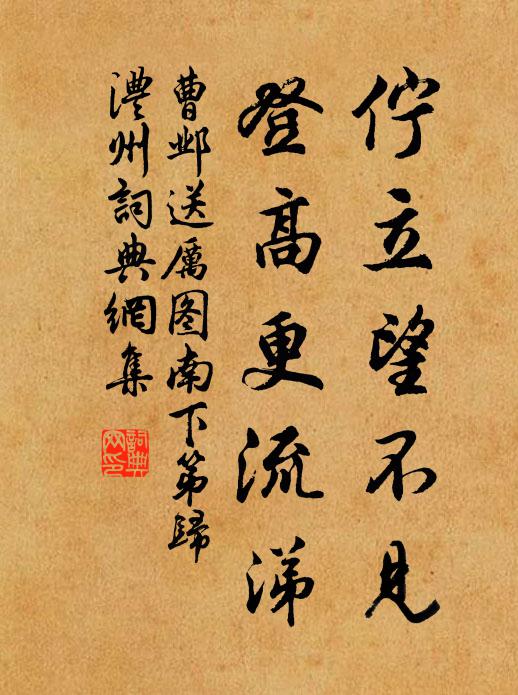 佇立望不見
登高更流涕
曹鄴送厲图南下第歸
澧州詞典網集
詞典网印